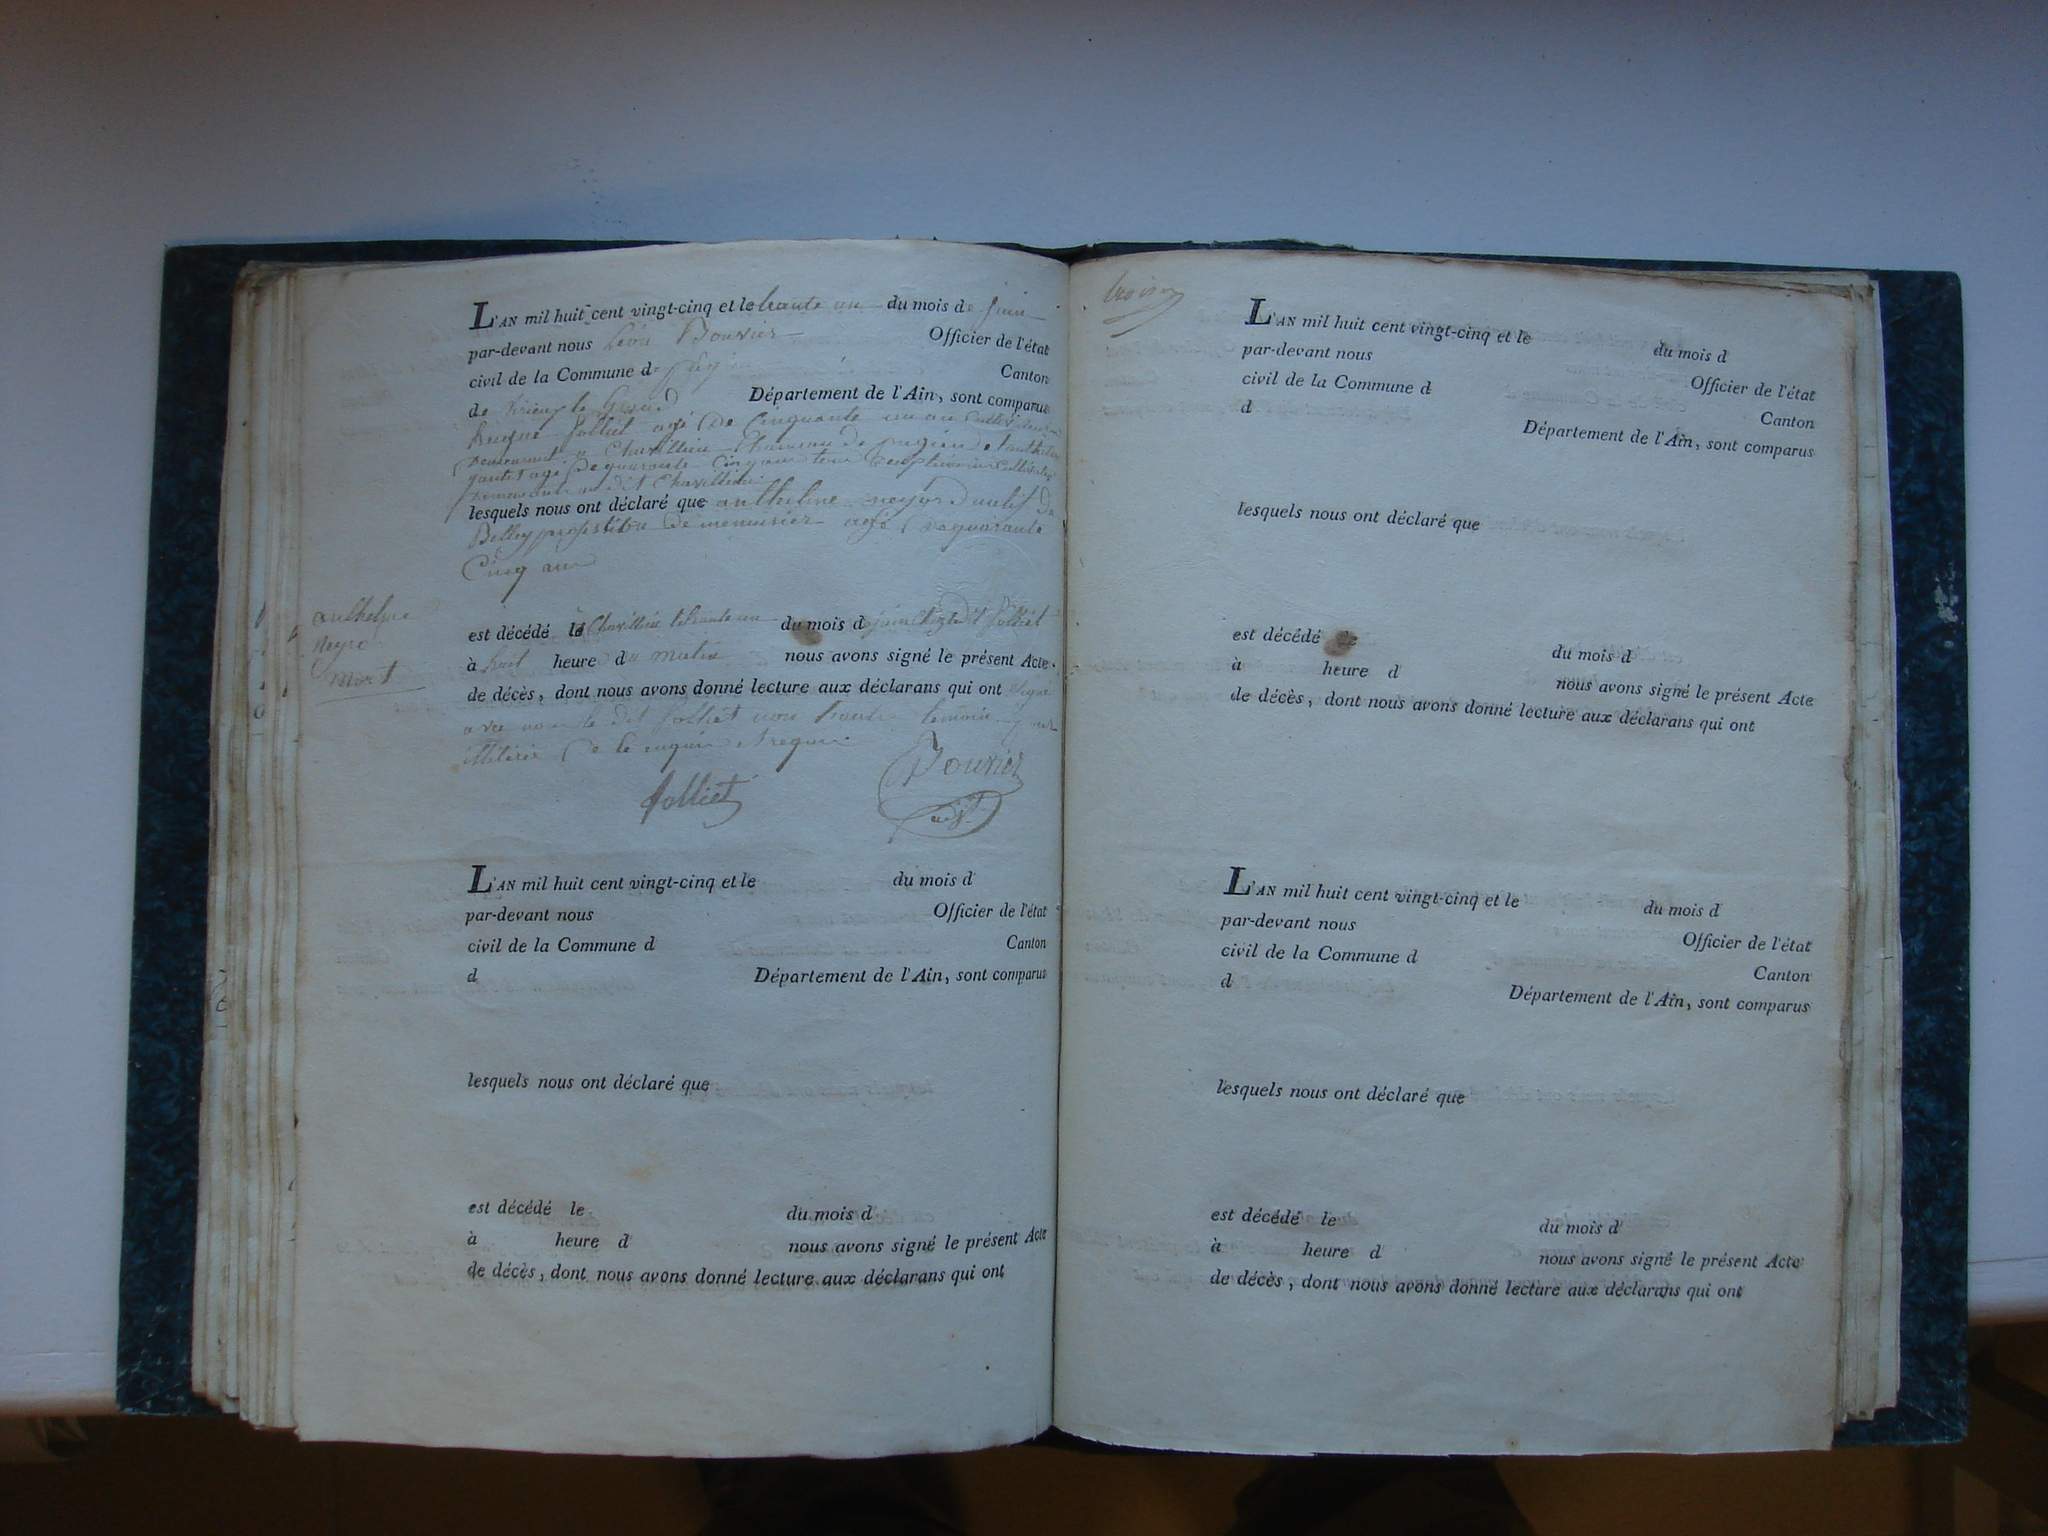 L'AN mil huit cent vingt-cinq et le trante un du mois de juin
par-devant nous Léon Bouvier Officier de l'état
civil de la Commune de pugieu Canton
de virieu le Grand Département de l'Ain, sont comparus
jolliet agé de Cinquante un an Cultivateur
Demeurant a Chavillieu hameau de pugieu
agé de quarante Cinq an Cultivateur
Demeurant au dit Chavillieu
lesquels nous ont déclaré que anthelme neyro natif de
Belley profession de menuisier agé de quarante
Cinq ans
anthelme
neyro
mort
est décédé à Chavillieu le trante un du mois de juin Chez le dit Jolliet
à huit heure du matin nous avons signé le présent Acte
de décès, dont nous avons donné lecture aux déclarans qui ont signé
avec nous le dit Jolliet non l'autre temoin pour
illiteré de le enquis et requis
Jolliet
Bouvier
adjt
L'AN mil huit cent vingt-cinq et le du mois d
par-devant nous Officier de l'état
civil de la Commune d Canton
d Département de l'Ain, sont comparus
lesquels nous ont déclaré que
est décédé le du mois d
à heure d nous avons signé le présent Acte
de décès, dont nous avons donné lecture aux déclarans qui ont
L'AN mil huit cent vingt-cinq et le du mois d
par-devant nous Officier de l'état
civil de la Commune d Canton
d Département de l'Ain, sont comparus
lesquels nous ont déclaré que
est décédé le du mois d
à heure d nous avons signé le présent Acte
de décès, dont nous avons donné lecture aux déclarans qui ont
L'AN mil huit cent vingt-cinq et le du mois d
par-devant nous Officier de l'état
civil de la Commune d Canton
d Département de l'Ain, sont comparus
lesquels nous ont déclaré que
est décédé le du mois d
à heure d nous avons signé le présent Acte
de décès, dont nous avons donné lecture aux déclarans qui ont